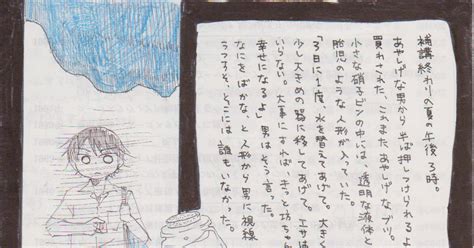 補講終わりの夏の午後3時。
あやしげな男から半ば押しつけられるよ
買わされた、これまたあやしげなブツ。
小さな硝子ビンの中には、透明な液体
胎児のような人形が入っていた。
「3日に1度、水を替えてあげて。大きく
少し大きめの器に移してあげて。エサは
いらない。大事にすれば、きっと坊ちゃ
幸せになるよ」男はそう言った。
なにをばかな、と人形から男に視線
うつすそ、とこには誰もいなかった。